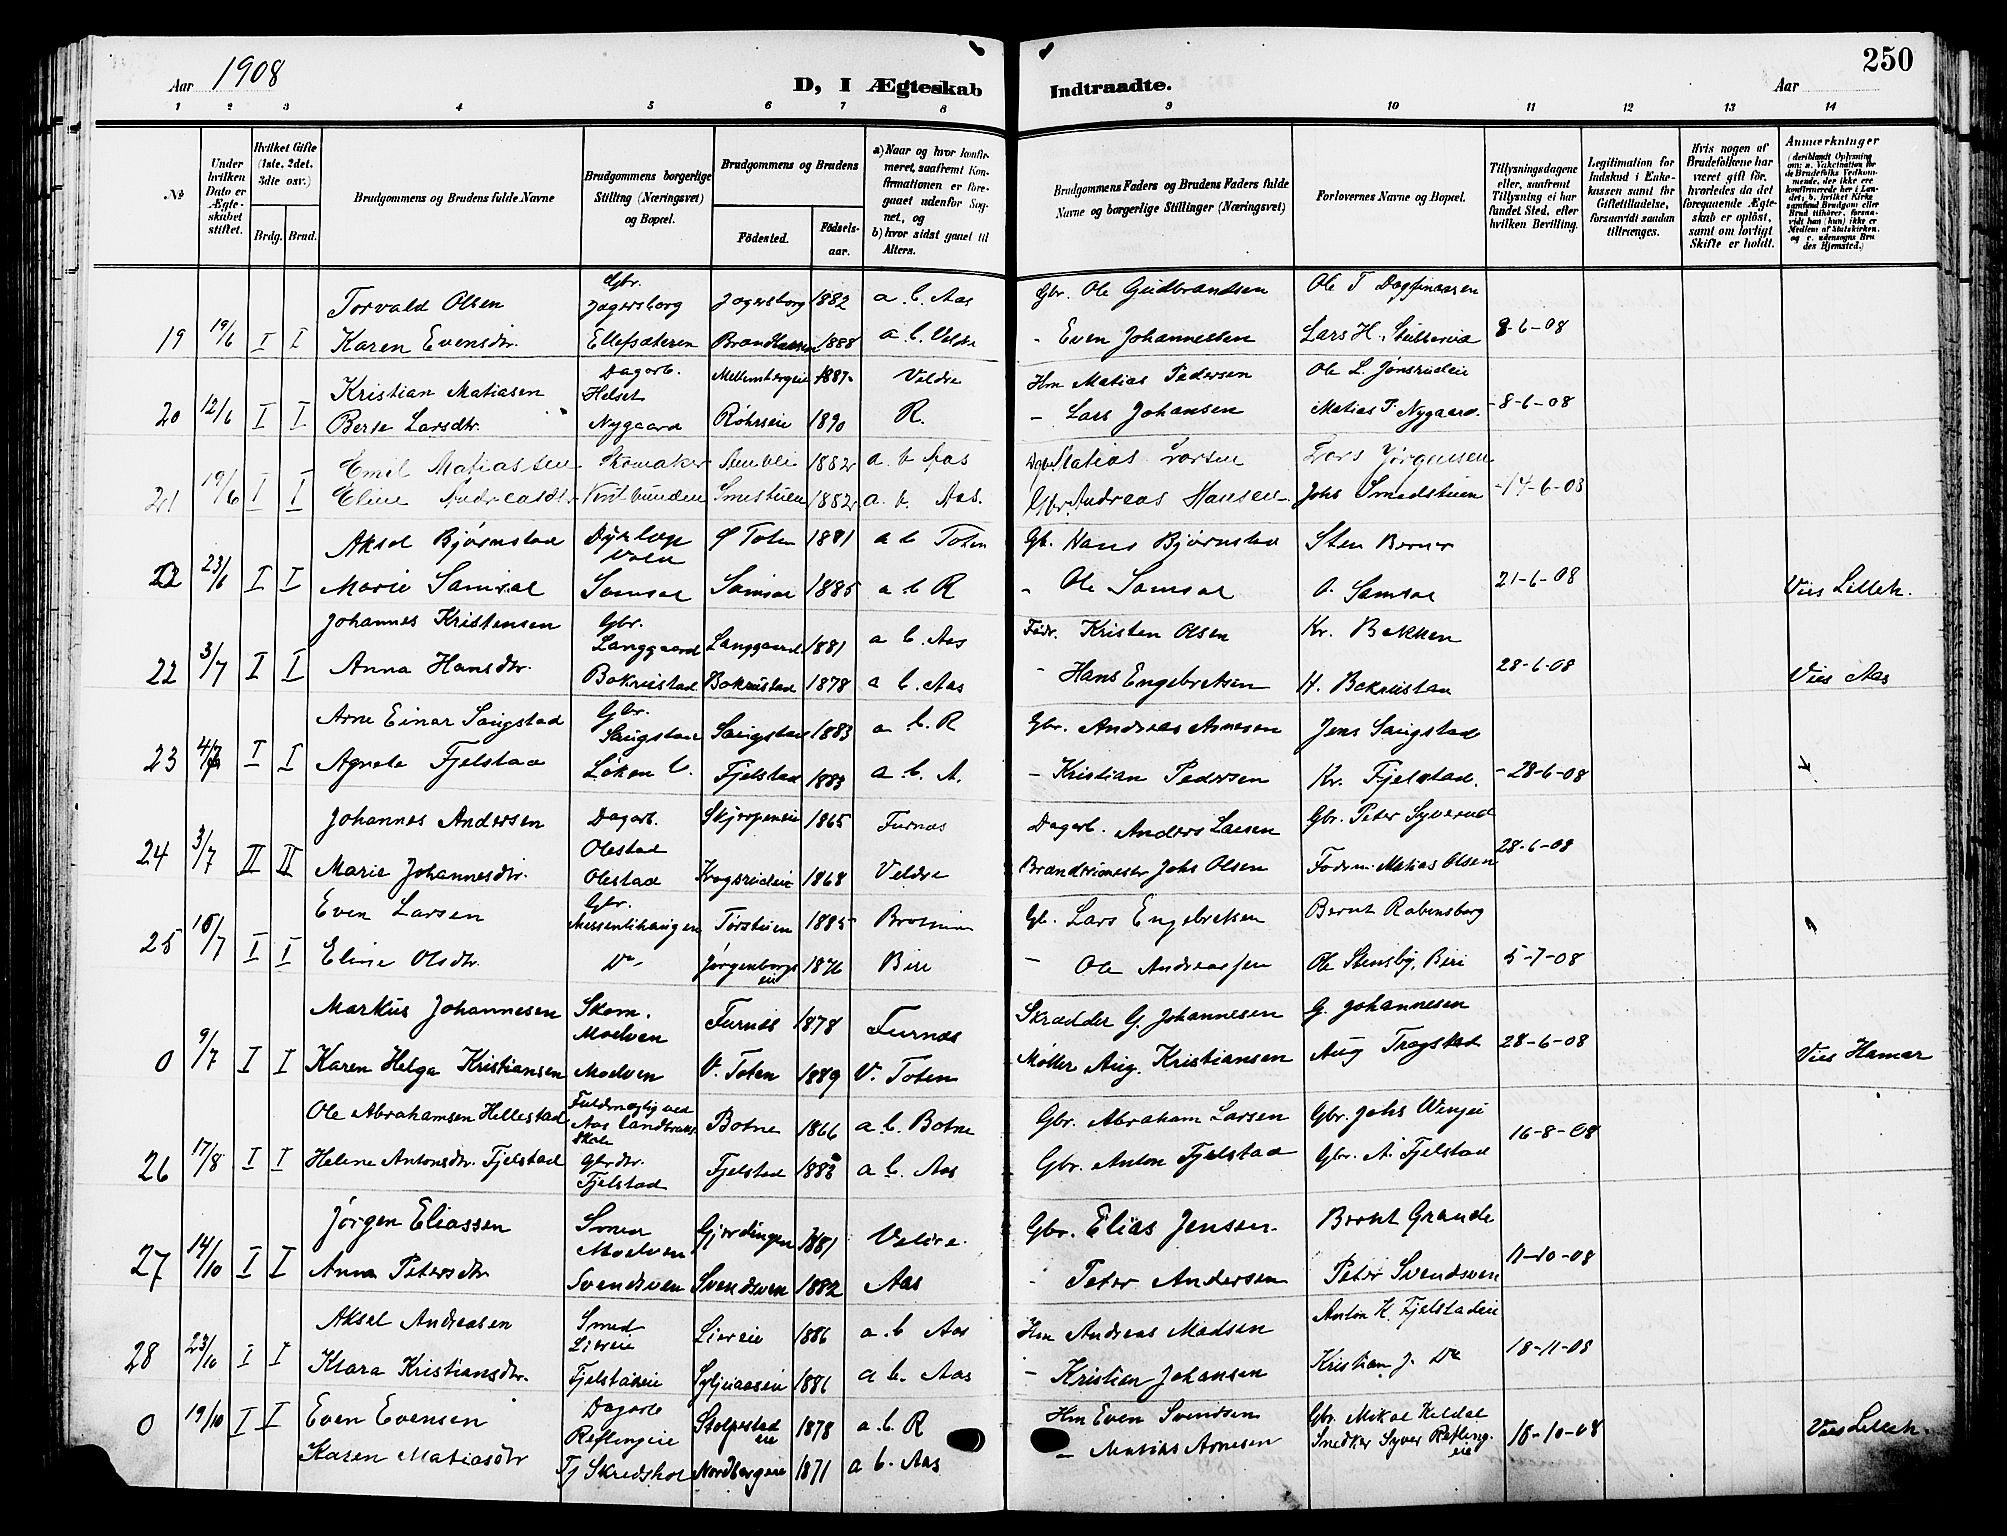 Aar 1908
D, I Ægteskab
Indtraadte.
Aar
250
1 2 3 4 5 6 7 8 9 10 11 12 13 14
№
Under hvilken Dato er Ægteskabet stiftet.
Hvilket Gifte (1ste, 2det, 3die osv.)
Brdg. Brud.
Brudgommens og Brudens fulde Navne
Brudgommens borgerlige Stilling (Næringsvei) og Bopæl.
Brudgommens og Brudens
Fødested. Fødselsaar.
a) Naar og hvor konfirmeret, saafremt Konfirmationen er foregaaet udenfor Sognet, og
b) hvor sidst gaaet til Alters.
Brudgommens Faders og Brudens Faders fulde Navne og borgerlige Stillinger (Næringsvei)
Forlovernes Navne og Bopæl.
Tillysningsdagene eller, saafremt Tillysning ei har fundet Sted, efter hvilken Bevilling.
Legitimation for Indskud i Enkekassen samt for Giftetilladelse, forsaavidt saadan tiltrænges.
Hvis nogen af Brudefolkene har været gift før, hvorledes da det foregaaende Ægteskab er opløst, samt om lovligt Skifte er holdt.
Anmærkninger
(deriblandt Oplysning om: a. Vakcination for de Brudefolks Vedkommende, der ikke ere konfirmerede her i Landet; b. hvilket Kirkesamfund Brudgom eller Brud tilhører, forsaavidt han (hun) ikke er Medlem af Statskirken, og c. udensogns Brudes Hjemsted.)
Torvald Olsen Gbr. Jagersborg Jagersborg 1882 a. b. Aas Gbr. Ole Gudbrandsen Ole T Dagfinassen
19 19/6 I I Karen Evensdtr. Ellefsæteren 1888 a. b. Veldre - Even Johannessen Lars H. 8-6-08
Kristian Matiasen Dagarb. Helset 1887 Veldre Hm Matias Pedersen Ole L. Jønsrudeie
20 12/6 I I Berte Larsdtr. Nygaard Røhrseie 1890 R. - Lars Johansen Matias T. Nygaard -8-6-08
Emil Matiassen Skomaker 1882 a. b Aas Matias Larsen Lars Jørgensen
21 19/6 I I Eline Andreasdtr. Smestuen 1882 a. b. Aas. Gbr. Andreas Hansen Johs Smedstuen -14-6-08
Aksel Bjørnstad Dyrlæge Ø Toten 1881 a b Toten Gb. Hans Bjørnstad Sten Berner
22 23/6 I I Marie Samsal Samsal Samsal 1885 a b R - Ole Samsal O. Samsal 21-6-08 Vies Lilleh.
Johannes Kristensen Gbr. Langgaard Langgaard 1881 a b. Aas Fødr. Kristen Olsen Kr. Bakken
22 3/7 I I Anna Hansdtr. Bakrustad Bakrustad 1878 a b. Aas - Hans Engebretsen H. Bakrustad 28-6-08 Vies Aas
Arne Einar Saugstad Gbr. Saugstad Saugstad 1883 a b. R Gbr. Andreas Arnesen Jens Saugstad
23 4/7 I I Agnete Fjelstad Løken V. Fjelstad 1883 a b. A. - Kristian Pedersen Kr. Fjelstad. -28-6-08
Johannes Andersen Dagarb. Olestad Skjørpeneie 1865 Furnes Dagarb. Anders Larsen Gbr. Peter Syverud
24 3/7 II II Marie Johannesdtr. Olestad Krogsrudeie 1868 Veldre Johs Olsen Matias Olsen 28-6-08
Even Larsen Gbr. Messenlihaugen Tørstuen 1885 Brøttum Gb. Lars Engebretsen Bernt Rabensborg
25 10/7 I I Eline Olsdtr. Do Jørgenborgseie 1876 Biri - Ole Andreassen Ole Stensby, Biri 5-7-08
Markus Johannesen Skom. Moelven Furnes 1878 Furnes Skrædder G. Johannesen G. Johannesen
0 9/7 I I Karen Helga Kristiansen Moelven V. Toten 1889 V. Toten Møller Aug. Kristiansen Aug Trogstad 28-6-08 Vies Hamar
Ole Abrahamsen Hellestad Fuldmægtig ved Aas Landbrukskole Botne 1866 a. b. Botne Gbr. Abraham Larsen Gbr. Johs Wenjei
26 17/8 I I Helene Antonsdtr. Fjelstad Gbrdtr. Fjelstad Fjelstad 1883 a b. Aas Gbr. Anton Fjelstad Gbr. A. Fjelstad 16-8-08
Jørgen Eliassen Smed Moelven Gjørdingen 1881 Veldre Gbr. Elias Jensen Bernt Grande
27 14/10 I I Anna Petersdtr Svendsven Svendsven 1882 Aas - Peter Andersen Peter Svendsven 11-10-08
Aksel Andreasen Smed Liereie Liereie 1886 a. b Aas Hm Andreas Madsen Anton K. Fjelstadeie
28 23/10 I I Klara Kristiansdtr. Fjelstadeie Syljuaaseie 1881 a b. Aas - Kristian Johansen Kristian J. Do 18-11-08
0 19/10 I I Even Evensen Dagarb Reflingeie Stolpestadeie 1878 a. b. R Hm Even Svendsen Gbr. Mikal Kildal
Karen Matiasdtr Fj Skredshol Nordbergeie 1871 a b. Aas - Matias Arnesen Snedker Syver Reflingeie 18-10-08 Vies Lilleh.